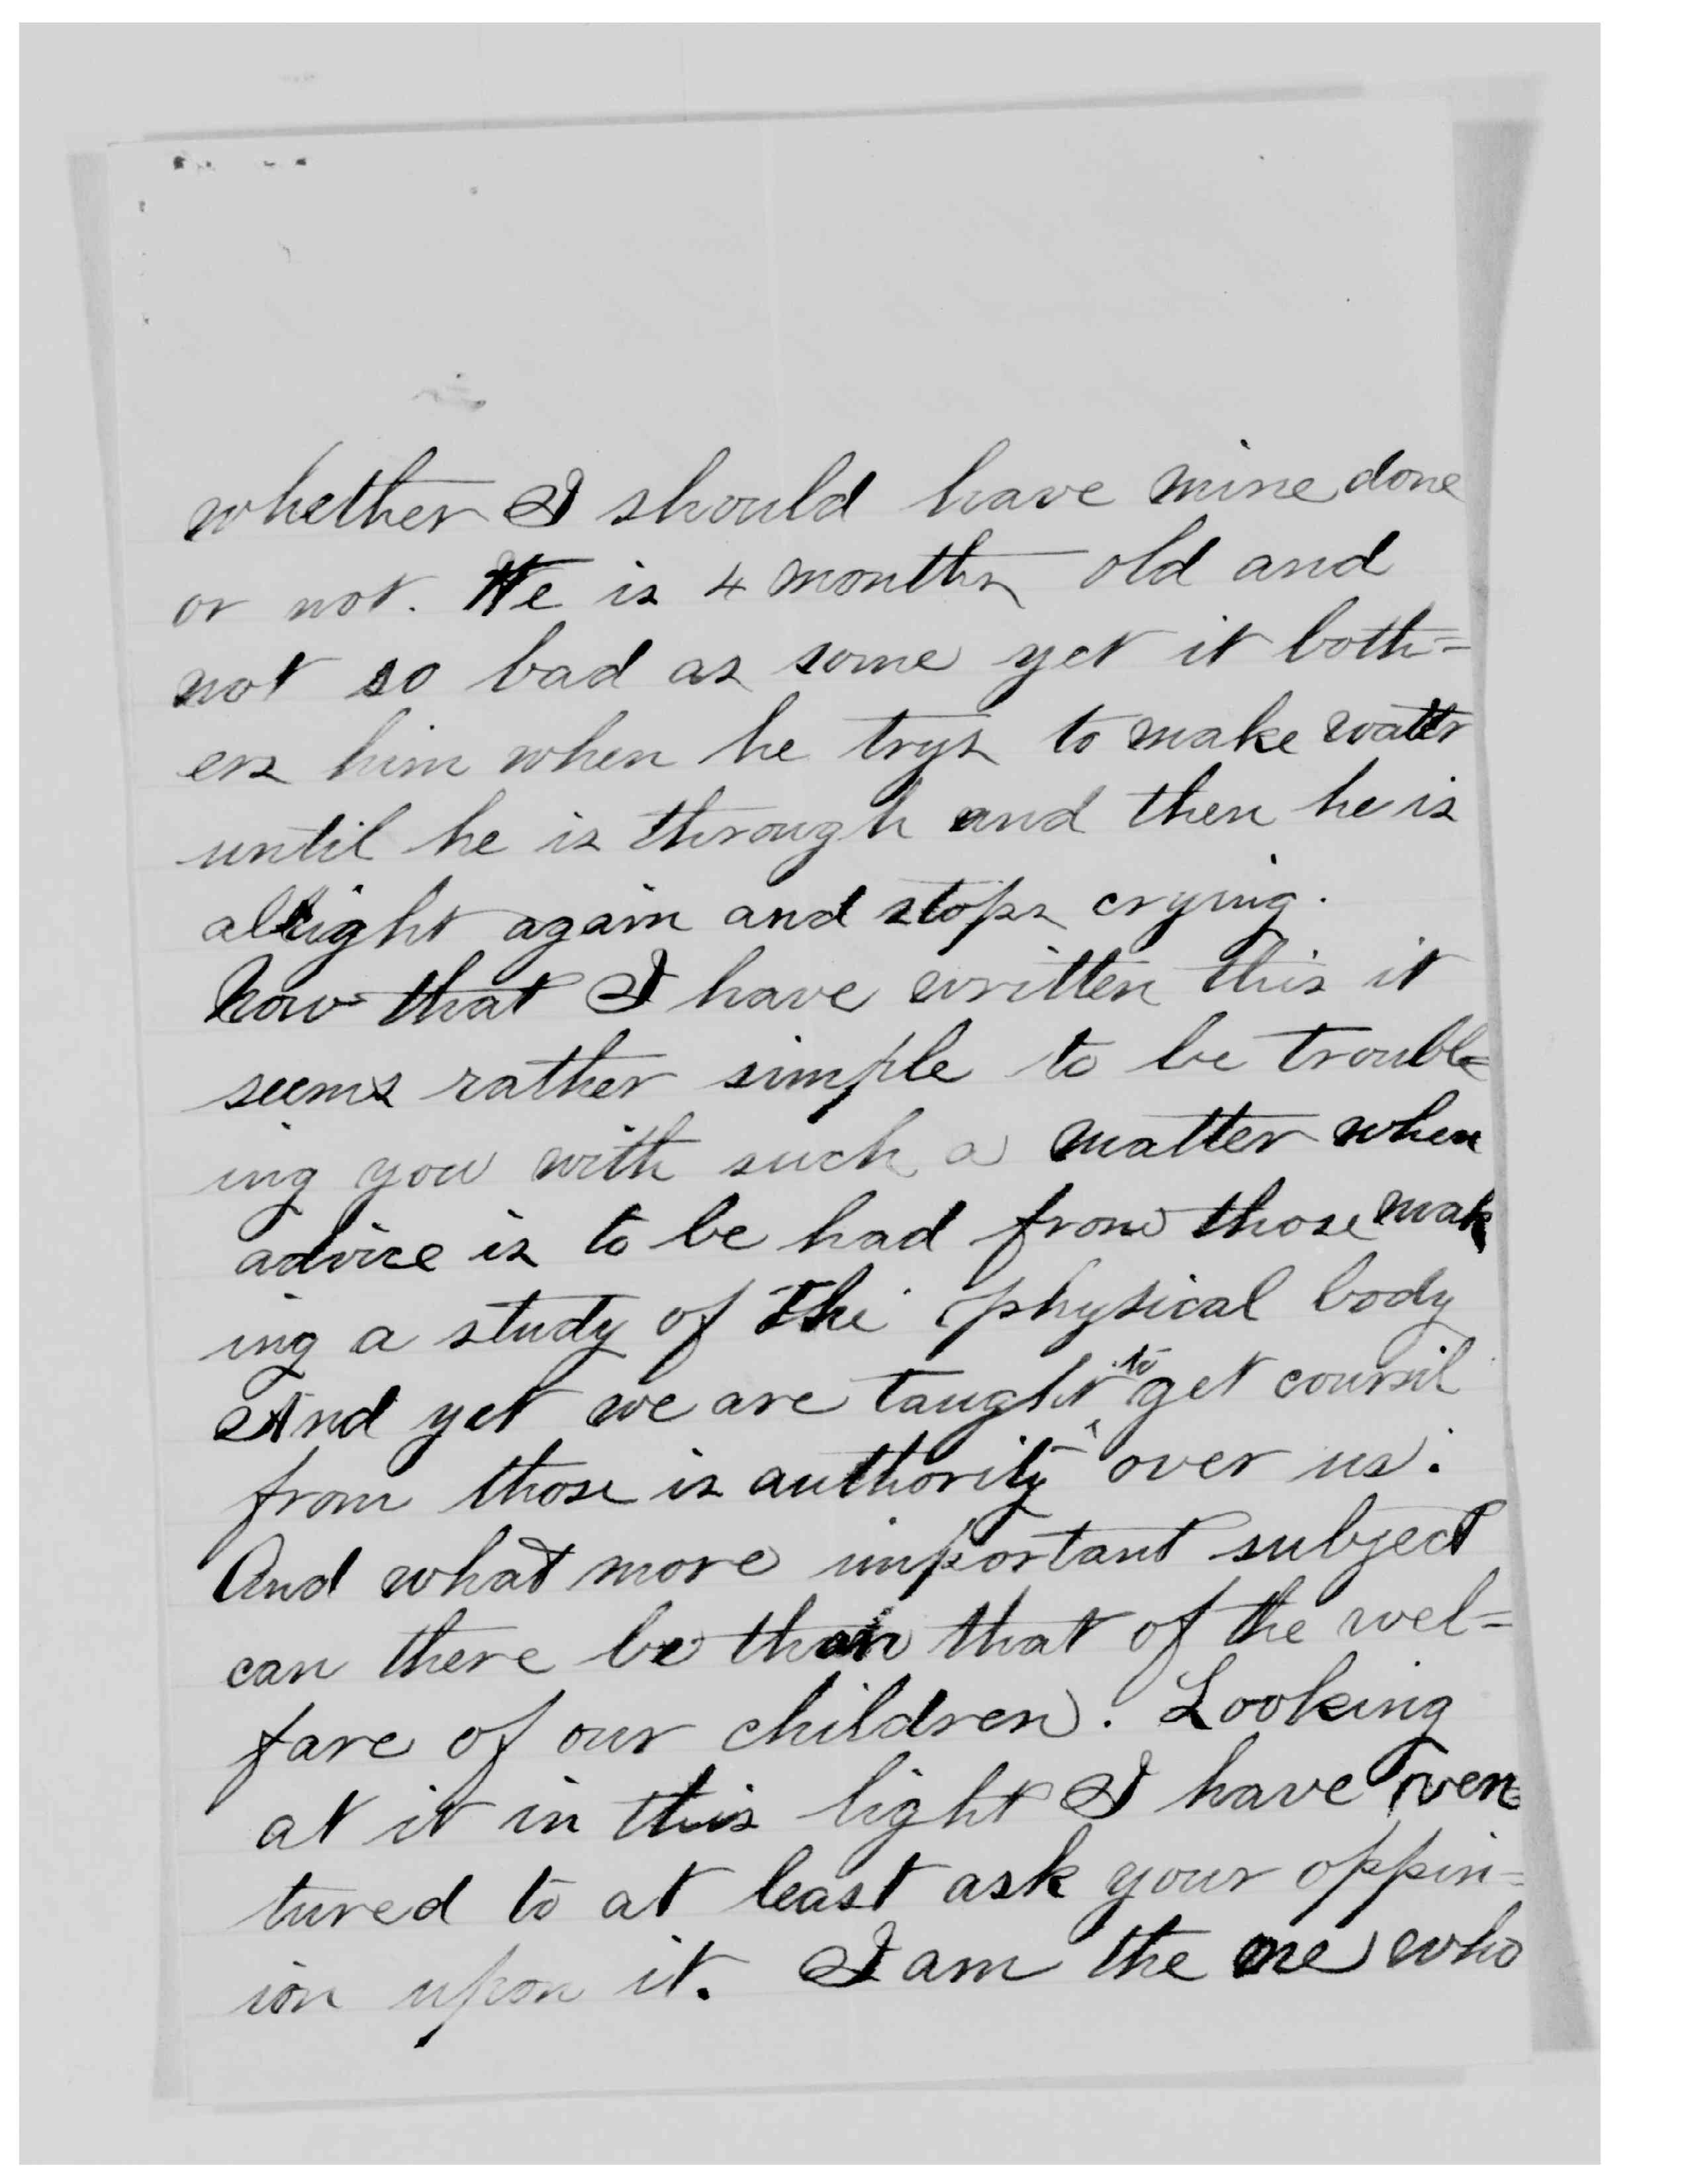 whether I should have mine done
or not. He is 4 months old and
not so bad as some yet it both=
ers him when he trys to make watter
until he is through and then he is
allright again and stops crying.
Now that I have written this it
seems rather simple to be troubl=
ing you with such a matter when
advice is to be had from those mak
ing a study of the physical body
And yet we are taught to get counsil
from those is authority over us.
And what more important subject
can there be than that of the wel=
fare of our children. Looking
at it in this light I have ven=
tured to at least ask your oppin=
ion upon it. I am the one who